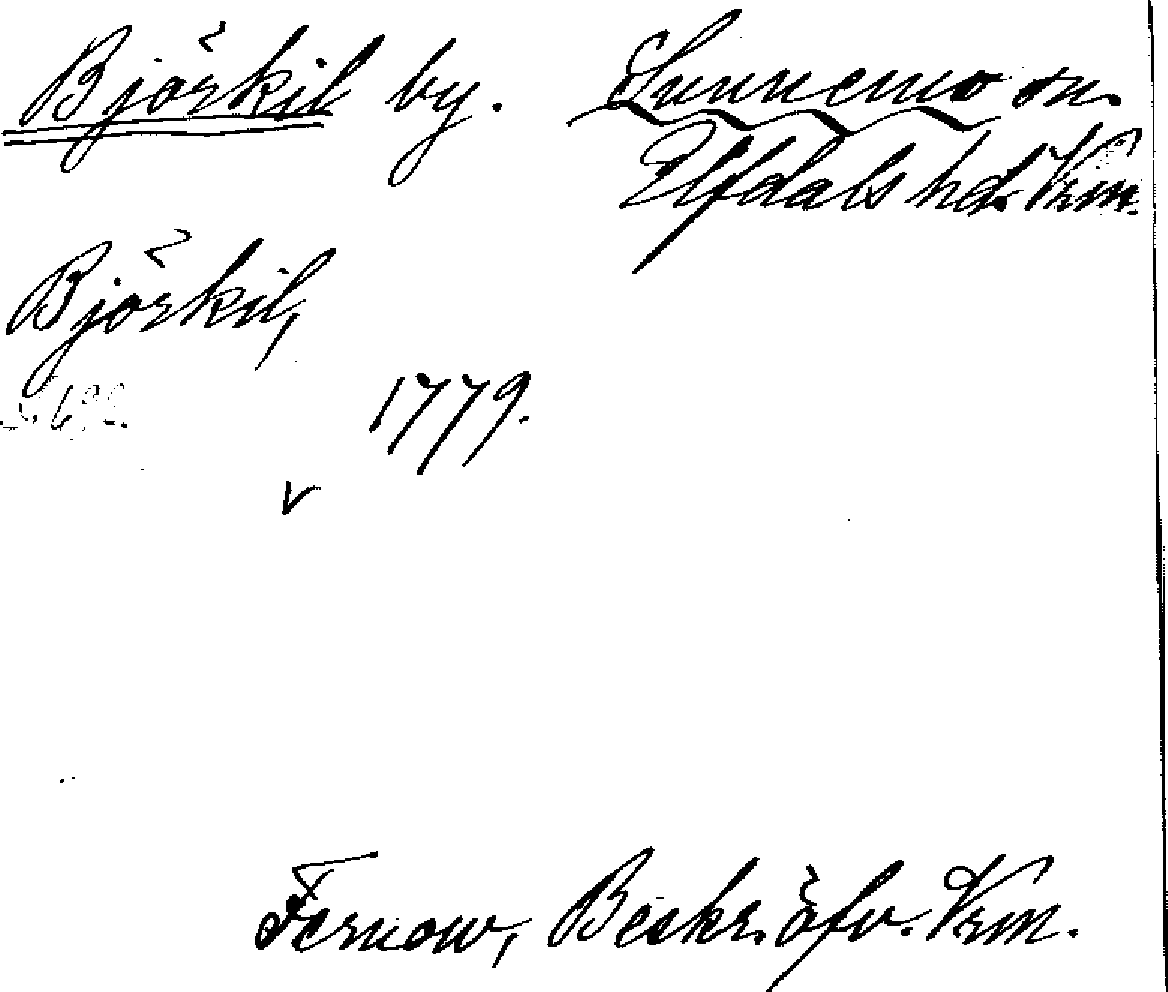 Björkil by. Sunnemo sn.
Elfdals hd. Vrm.
Björkil,
1779.
v
Fernow, Beskr. öfv. Vrm.